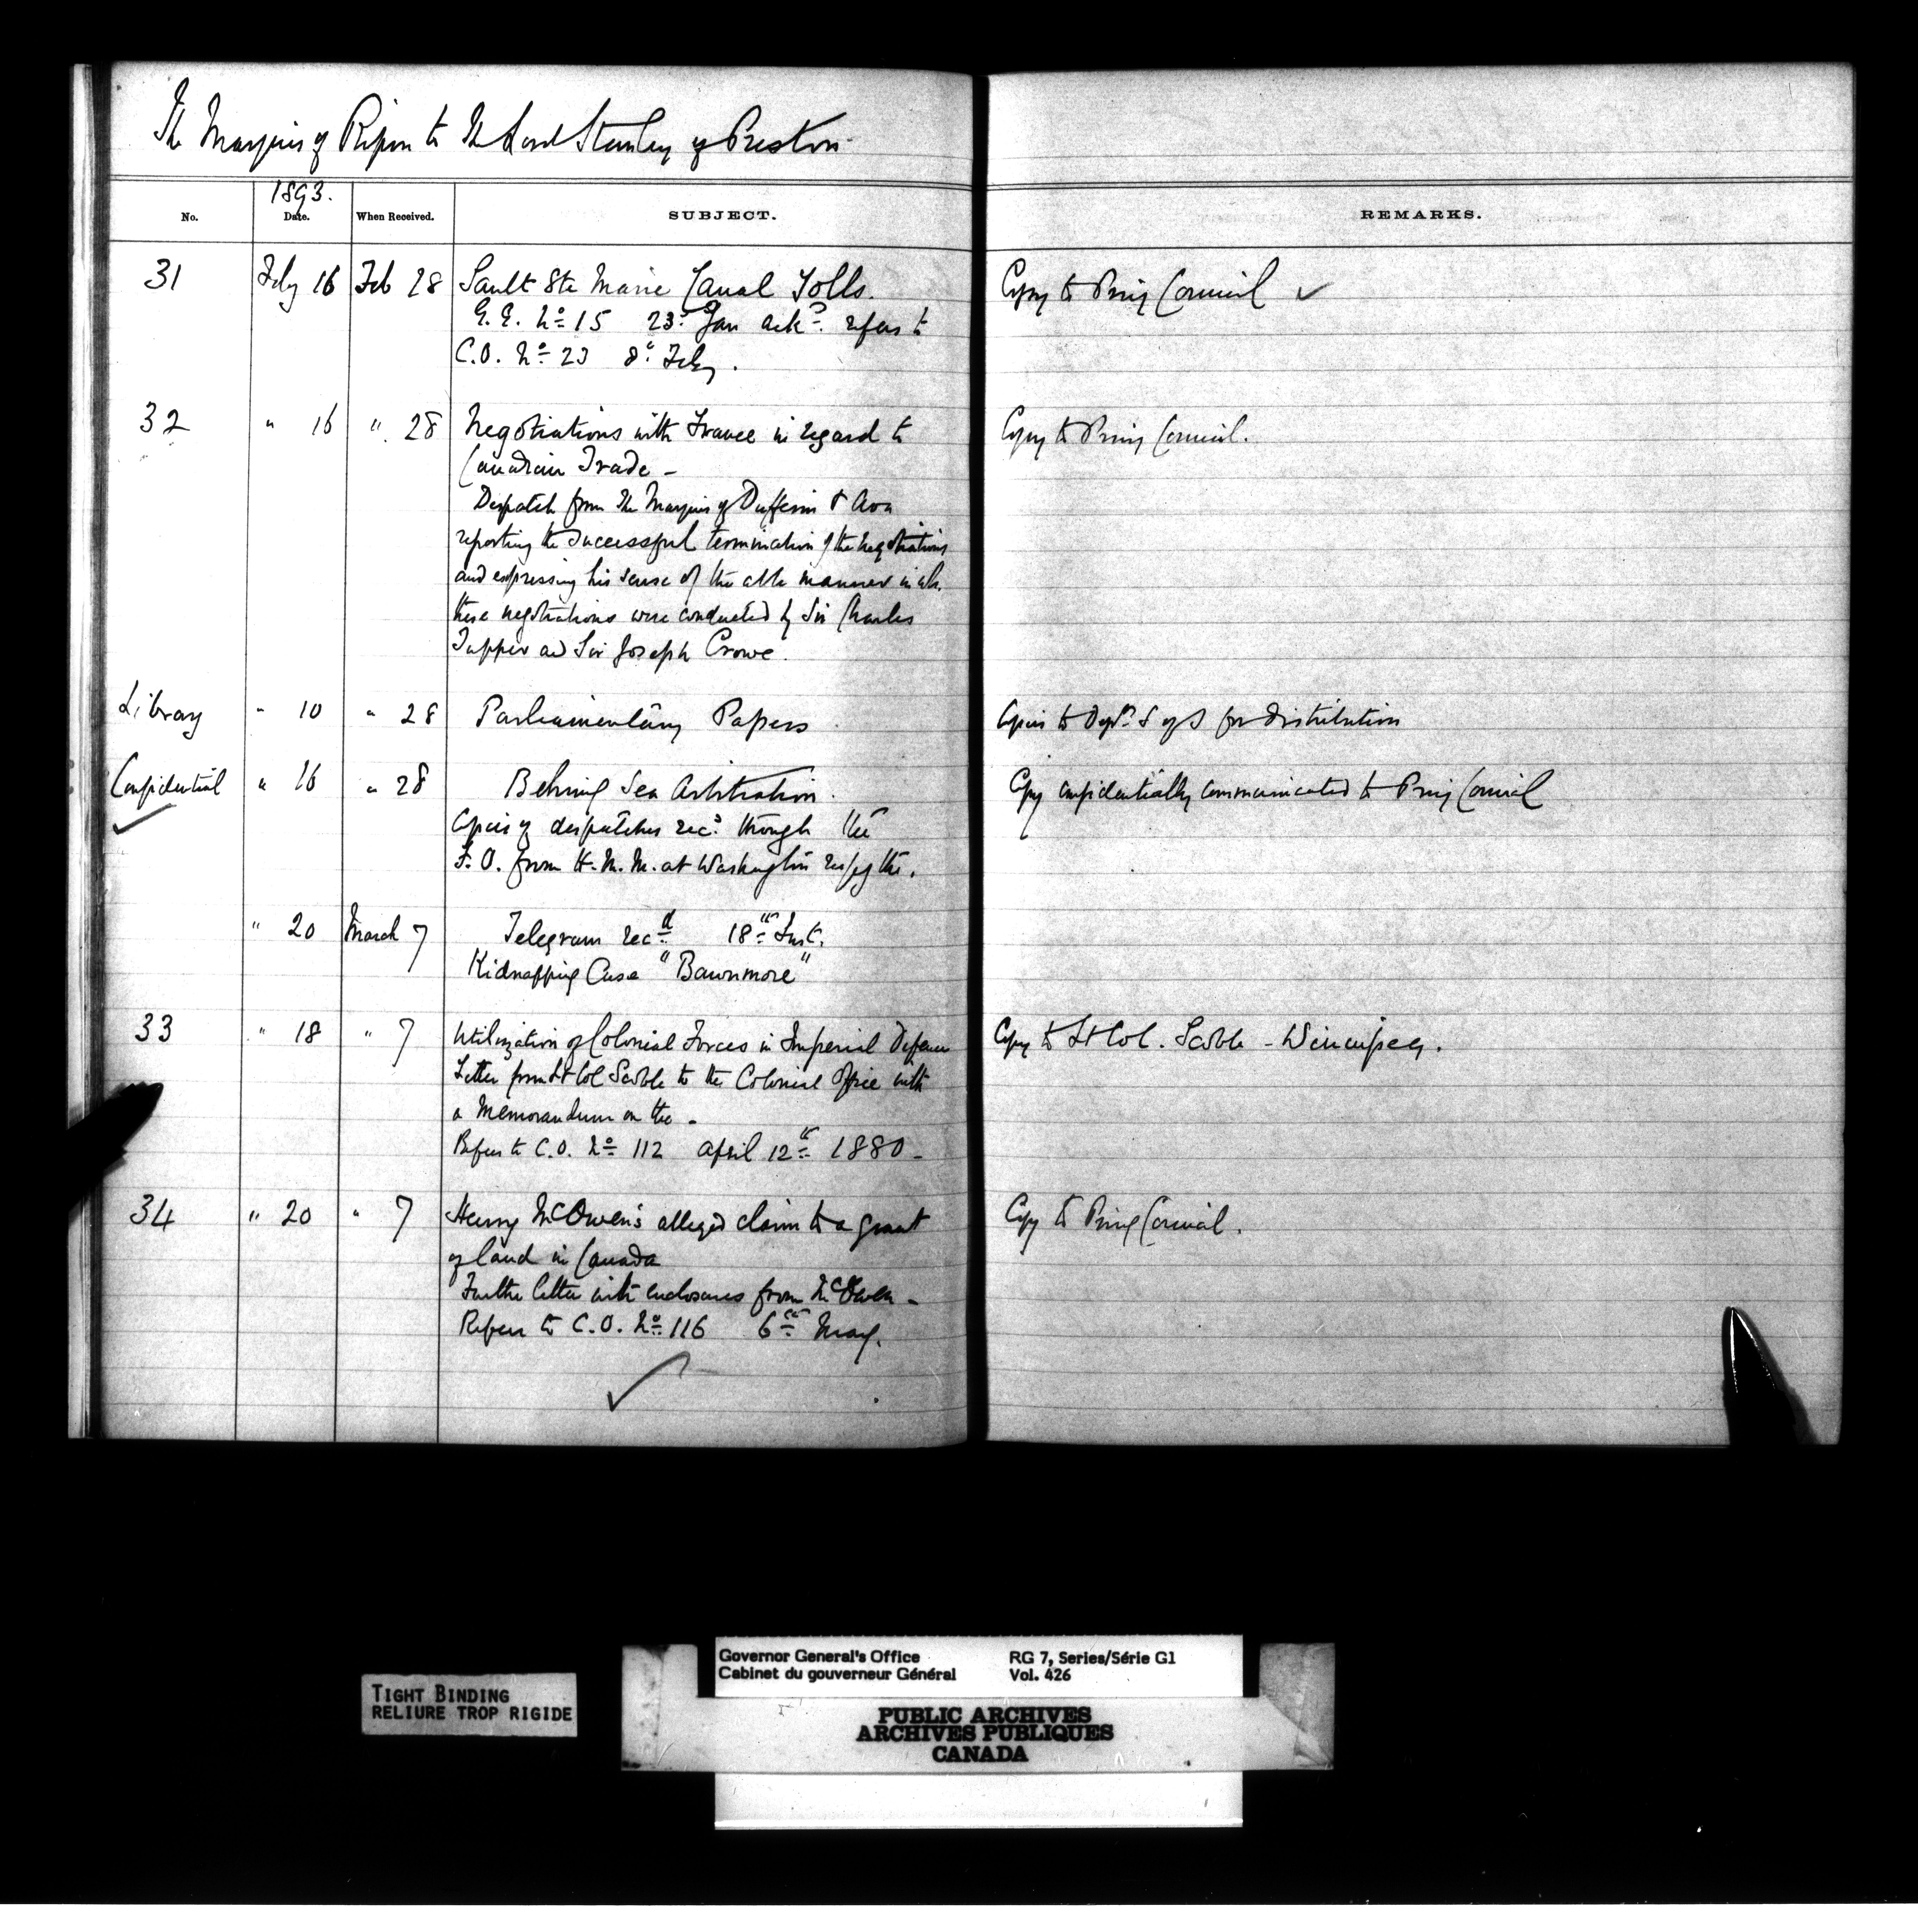 The Marquis of Ripon to The Lord Stanley of Preston
1893.
No. Date. When Received. SUBJECT. REMARKS.
31 Feby 16 Feb 28 Sault Ste Marie Canal Tolls. Copy to Privy Council ✓
G.G. No 15 23d Jan ackd. refers to
C.O. No 23 8th Feby.
32 " 16 " 28 Negotiations with France in regard to Copy to Privy Council.
Canadian Trade -
Despatch from the Marquis of Dufferin & Ava
reporting the successful termination of the negotiations
and expressing his sense of the able manner in wh.
these negotiations were conducted by Sir Charles
Tupper and Sir Joseph Crowe.
Library " 10 " 28 Parliamentary Papers Copies to Dept. S of S for distribution
Confidential " 16 " 28 Behring Sea Arbitration. Copy confidentially communicated to Privy Council
✓ Copies of despatches recd. through the
F.O. from H.M.M. at Washington resp'g the.
" 20 March 7 Telegram recd 18th Inst.
Kidnapping Case "Bawnmore"
33 " 18 " 7 Utilization of Colonial Forces in Imperial Defence Copy to Lt Col. Scoble - Winnipeg.
Letter from Lt Col Scoble to the Colonial Office with
a Memorandum on the -
Refers to C.O. No 112 April 12th 1880 -
34 " 20 " 7 Henry McOwen's alleged claim to a grant Copy to Privy Council.
of land in Canada
Further letter with enclosures from McOwen -
Refers to C.O. No 116 6th May.
✓
TIGHT BINDING
RELIURE TROP RIGIDE
Governor General's Office RG 7, Series/Série G1
Cabinet du gouverneur Général Vol. 426
PUBLIC ARCHIVES
ARCHIVES PUBLIQUES
CANADA